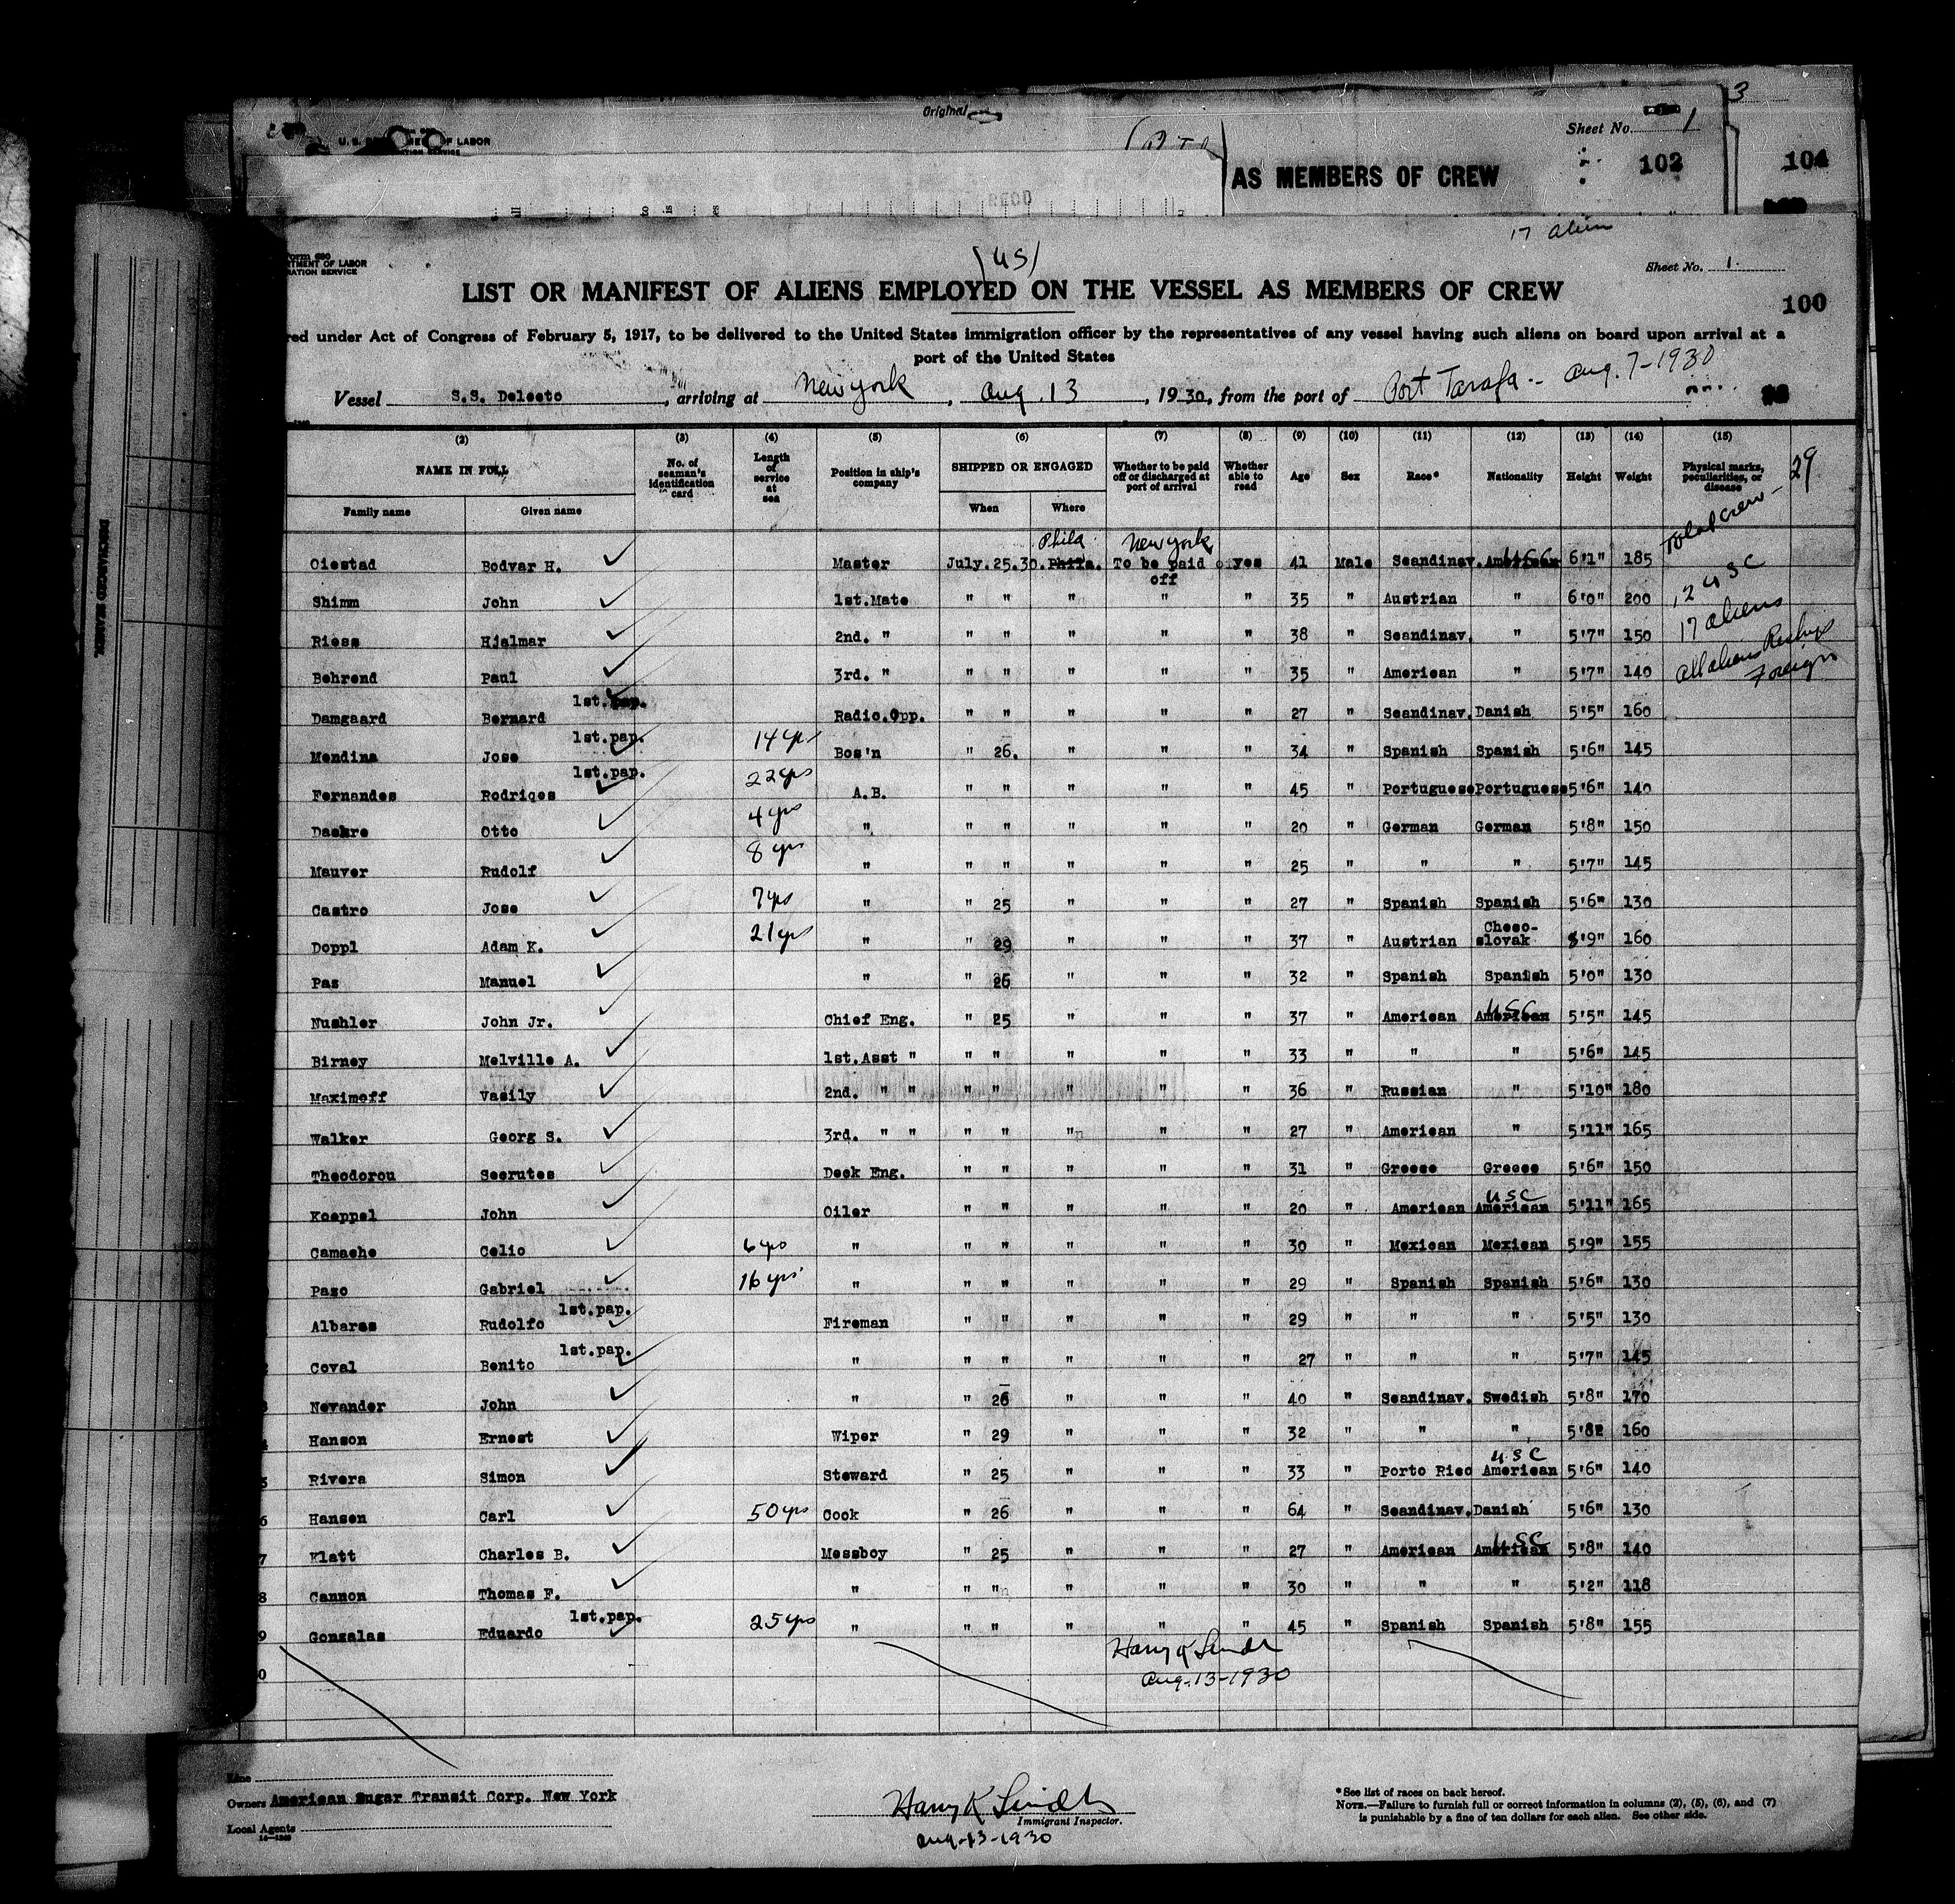 Original
U. S. DEPARTMENT OF LABOR
Sheet No. 1
3
AS MEMBERS OF CREW
102
104
17 alien
Form 680
RTMENT OF LABOR
RATION SERVICE
(US)
Sheet No. 1.
LIST OR MANIFEST OF ALIENS EMPLOYED ON THE VESSEL AS MEMBERS OF CREW
100
red under Act of Congress of February 5, 1917, to be delivered to the United States immigration officer by the representatives of any vessel having such aliens on board upon arrival at a
port of the United States
Vessel S.S. Delecto, arriving at New York, Aug. 13, 1930, from the port of Port Tarafa -- Aug. 7-1930
(2) (3) (4) (5) (6) (7) (8) (9) (10) (11) (12) (13) (14) (15)
NAME IN FULL No. of seaman's identification card Length of service at sea Position in ship's company SHIPPED OR ENGAGED Whether to be paid off or discharged at port of arrival Whether able to read Age Sex Race* Nationality Height Weight Physical marks, peculiarities, or disease
Family name Given name When Where
Total crew - 29
12 USC
17 aliens
All aliens Reship Foreign
Phila New York USC
Oiestad Bodvar H. ✓ Master July.25.30. Phila. To be paid off yes 41 Male Scandinav. American 6'1" 185
Shimm John ✓ 1st.Mate " " " " " 35 " Austrian " 6'0" 200
Riess Hjalmar ✓ 2nd. " " " " " " 38 " Scandinav. " 5'7" 150
Behrend Paul ✓ 3rd. " " " " " " 35 " American " 5'7" 140
Damgaard Bernard 1st.pap. ✓ Radio.Opp. " " " " " 27 " Scandinav. Danish 5'5" 160
Mendina Jose 1st.pap. ✓ 14 yr Bos'n " 26. " " " 34 " Spanish Spanish 5'6" 145
Fernandes Rodriges 1st.pap. ✓ 22 yrs A.B. " " " " " 45 " Portuguese Portuguese 5'6" 140
Daekre Otto ✓ 4 yrs " " " " " " 20 " German German 5'8" 150
Mauver Rudolf ✓ 8 yrs " " " " " " 25 " " " 5'7" 145
Castro Jose ✓ 7 yrs " " 25 " " " 27 " Spanish Spanish 5'6" 130
Doppl Adam K. ✓ 21 yrs " " 29 " " " 37 " Austrian Checo-slovak 5'9" 160
Paz Manuel ✓ " " 26 " " " 32 " Spanish Spanish 5'0" 130
Nushler John Jr. ✓ Chief Eng. " 25 " " " 37 " American American USC 5'5" 145
Birney Melville A. ✓ 1st.Asst " " " " " " 33 " " " 5'6" 145
Maximoff Vasily ✓ 2nd. " " " " " " " 36 " Russian " 5'10" 180
Walker Georg S. ✓ 3rd. " " " " " " " 27 " American " 5'11" 165
Theodorou Socrutes ✓ Deck Eng. " " " " " 31 " Greece Greece 5'6" 150
Koeppel John ✓ Oiler " " " " " 20 " American American USC 5'11" 165
Camacho Celio ✓ 6 yrs " " " " " " 30 " Mexican Mexican 5'9" 155
Pazo Gabriel ✓ 16 yrs " " " " " " 29 " Spanish Spanish 5'6" 130
Albares Rudolfo 1st.pap. ✓ Fireman " " " " " 29 " " " 5'5" 130
Coval Benito 1st.pap. ✓ " " " " " " 27 " " " 5'7" 145
Nevander John ✓ " " 26 " " " 40 " Scandinav. Swedish 5'8" 170
Hanson Ernest ✓ Wiper " 29 " " " 32 " " " 5'8" 160
Rivera Simon ✓ Steward " 25 " " " 33 " Porto Rico American USC 5'6" 140
6 Hansen Carl ✓ 50 yrs Cook " 26 " " " 64 " Scandinav. Danish 5'6" 130
7 Klatt Charles B. ✓ Messboy " 25 " " " 27 " American American USC 5'8" 140
8 Cannon Thomas F. ✓ " " " " " " 30 " " " 5'2" 118
9 Gonzalas Eduardo 1st.pap. ✓ 25 yrs " " " " " " 45 " Spanish Spanish 5'8" 155
0
Harry K Lindh
Aug-13-1930
Line
Owners American Sugar Transit Corp. New York
Local Agents
Harry K Lindh
Immigrant Inspector.
Aug-13-1930
*See list of races on back hereof.
NOTE.—Failure to furnish full or correct information in columns (2), (5), (6), and (7)
is punishable by a fine of ten dollars for each alien. See other side.